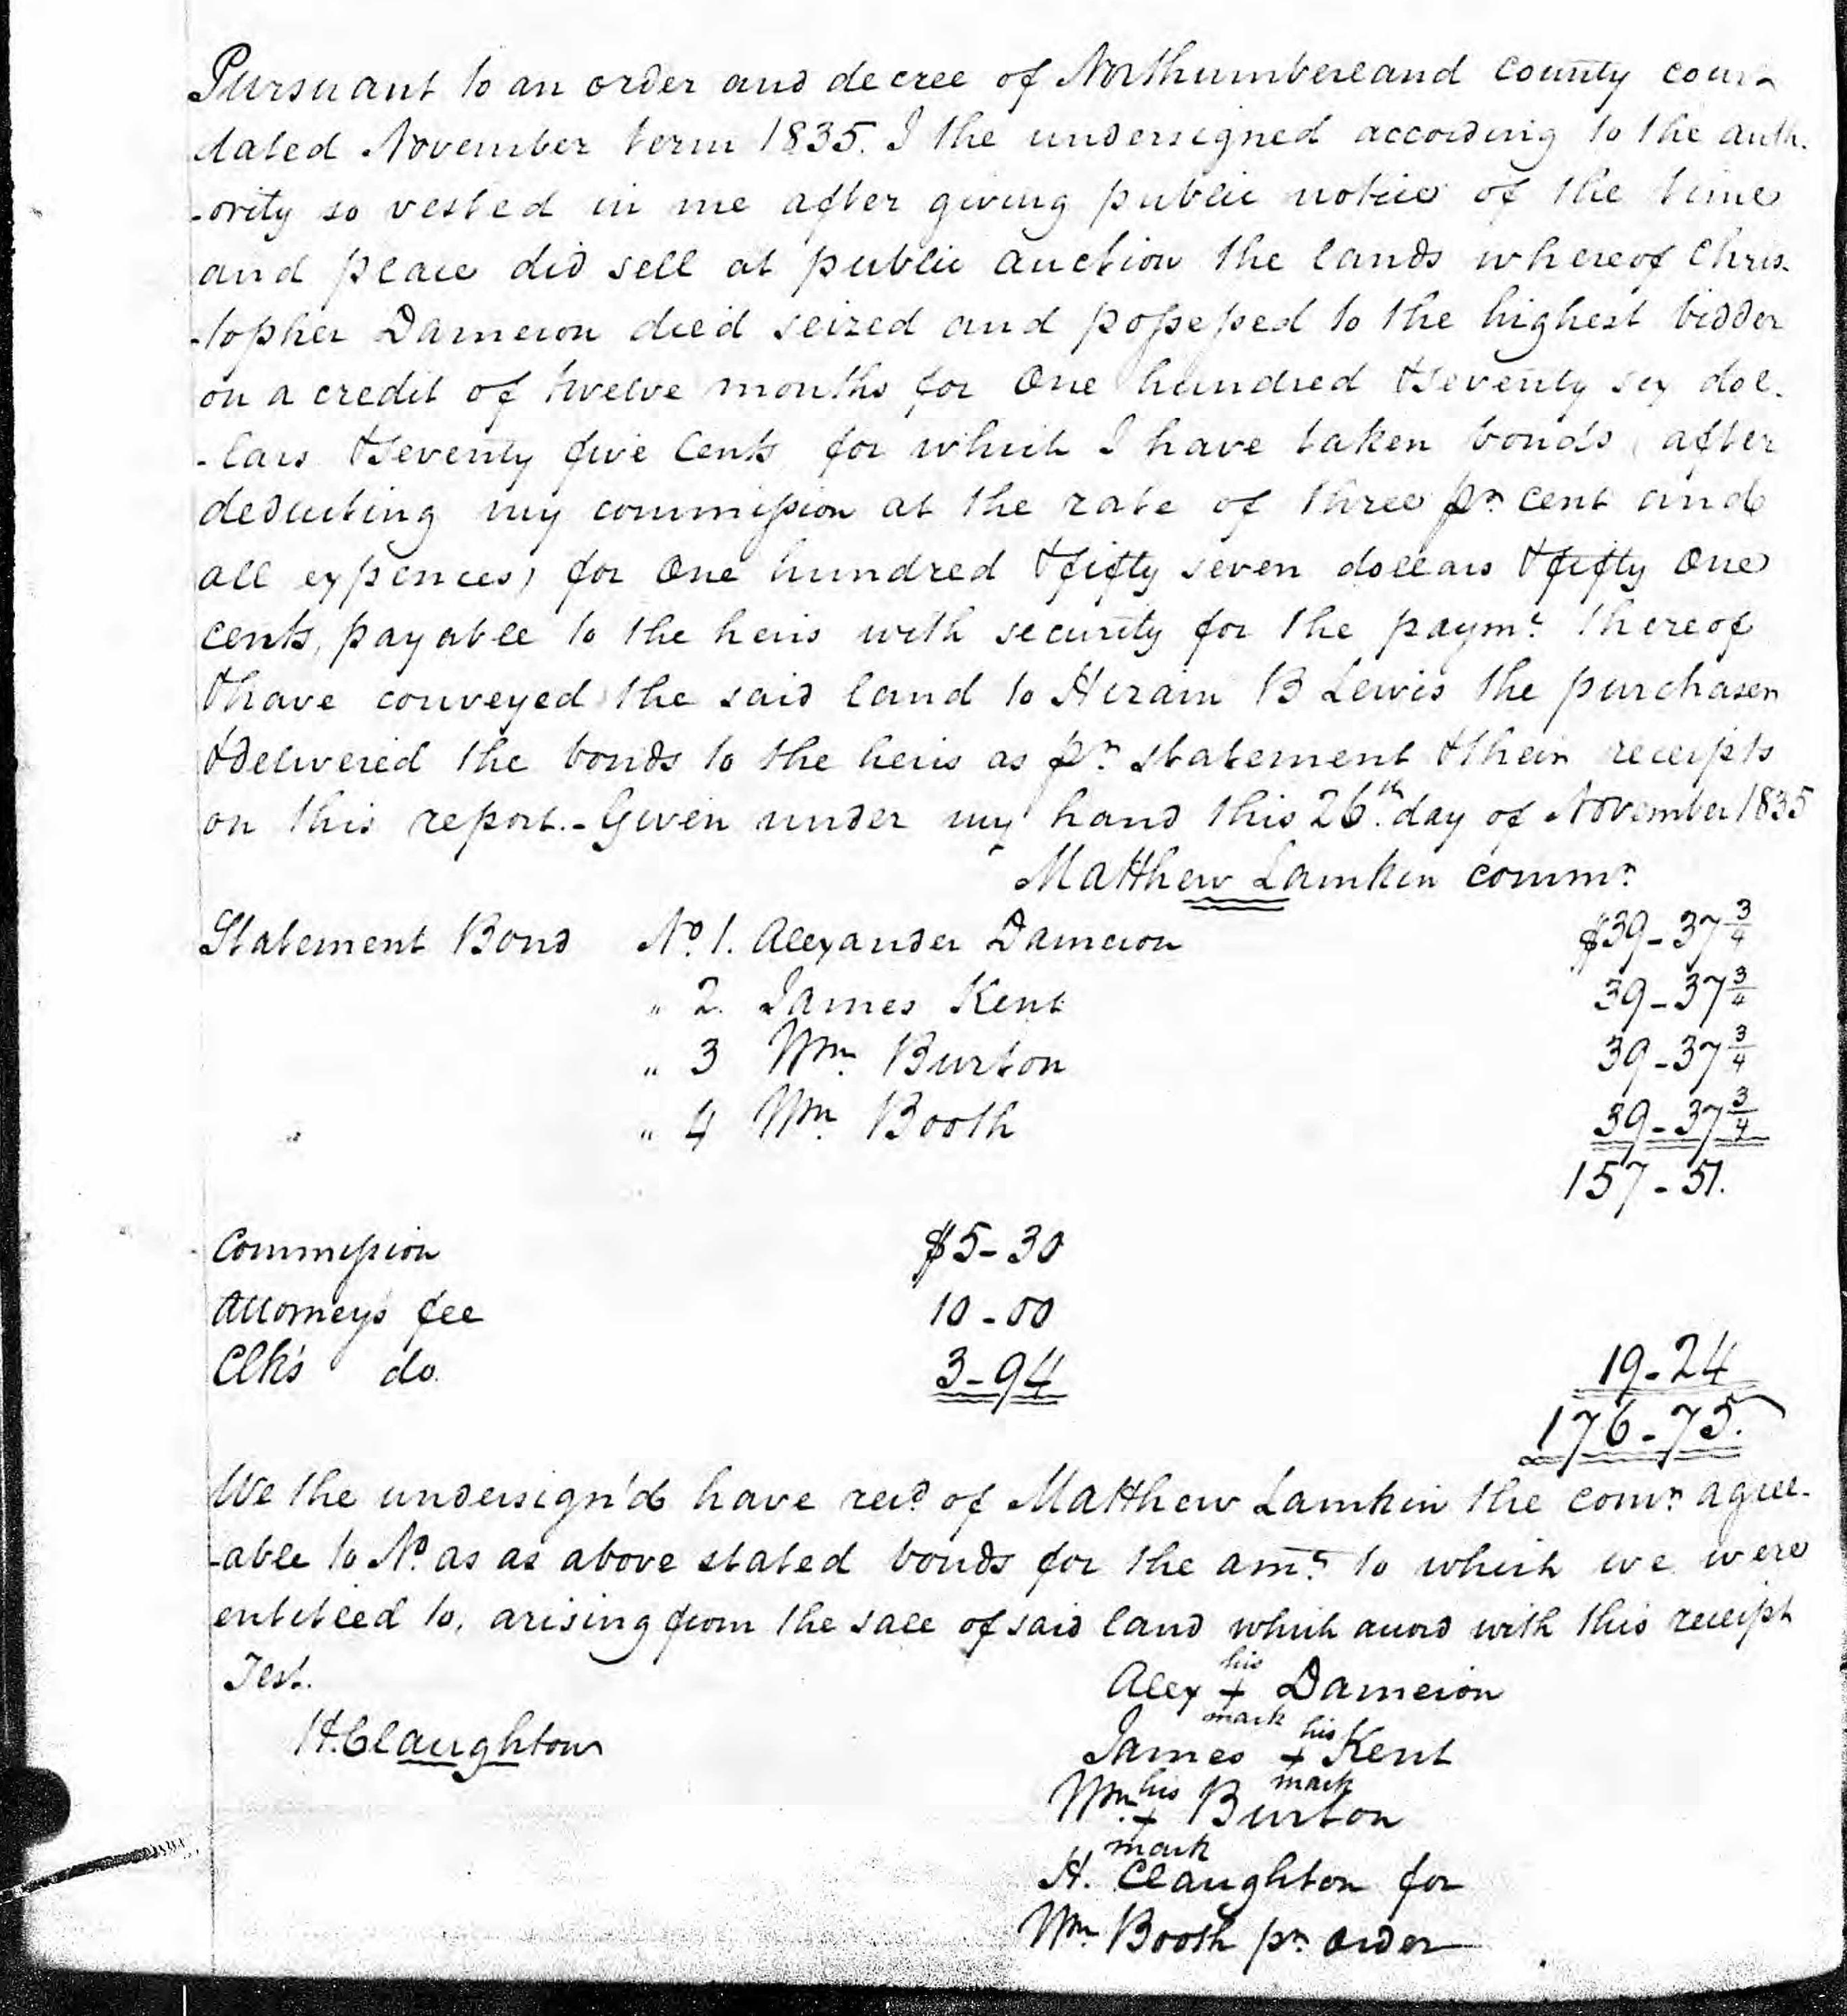 Pursuant to an order and decree of Northumberland County cour
dated November term 1835. I the undersigned according to the auth.
-ority so vested in me after giving public notice of the time
and place did sell at public auction the lands whereof Chris-
-topher Dameron died seized and possessed to the highest bidder
on a credit of twelve months for One hundred & seventy six dol-
-lars & seventy five Cents for which I have taken bonds (after
deducting my commission at the rate of three pr cent and
all expences) for One hundred & fifty seven dollars & fifty One
cents, payable to the heirs with security for the paymt. thereof
& have conveyed the said land to Hiram B Lewis the purchaser
& delivered the bonds to the heirs as pr. statement & their receipts
on this report. - Given under my hand this 26th. day of November 1835
Matthew Lamkin commr.
Statement Bond No. 1. Alexander Dameron $39-37 3/4
" 2. James Kent 39-37 3/4
" 3 Wm. Burton 39-37 3/4
" 4 Wm. Booth 39-37 3/4
157-51.
Commission $5-30
Attorneys fee 10-00
Clk's do. 3-94 19-24
176-75.
We the undersign'd have recd. of Matthew Lamkin the comr. agree-
-able to No. as as above stated bonds for the amt. to which we were
entitled to, arising from the sale of said land which accord with this receipt
Test. his
Alex + Dameron
mark his
H. Claughton James + Kent
his mark
Wm. + Burton
mark
H. Claughton for
Wm Booth pr. order